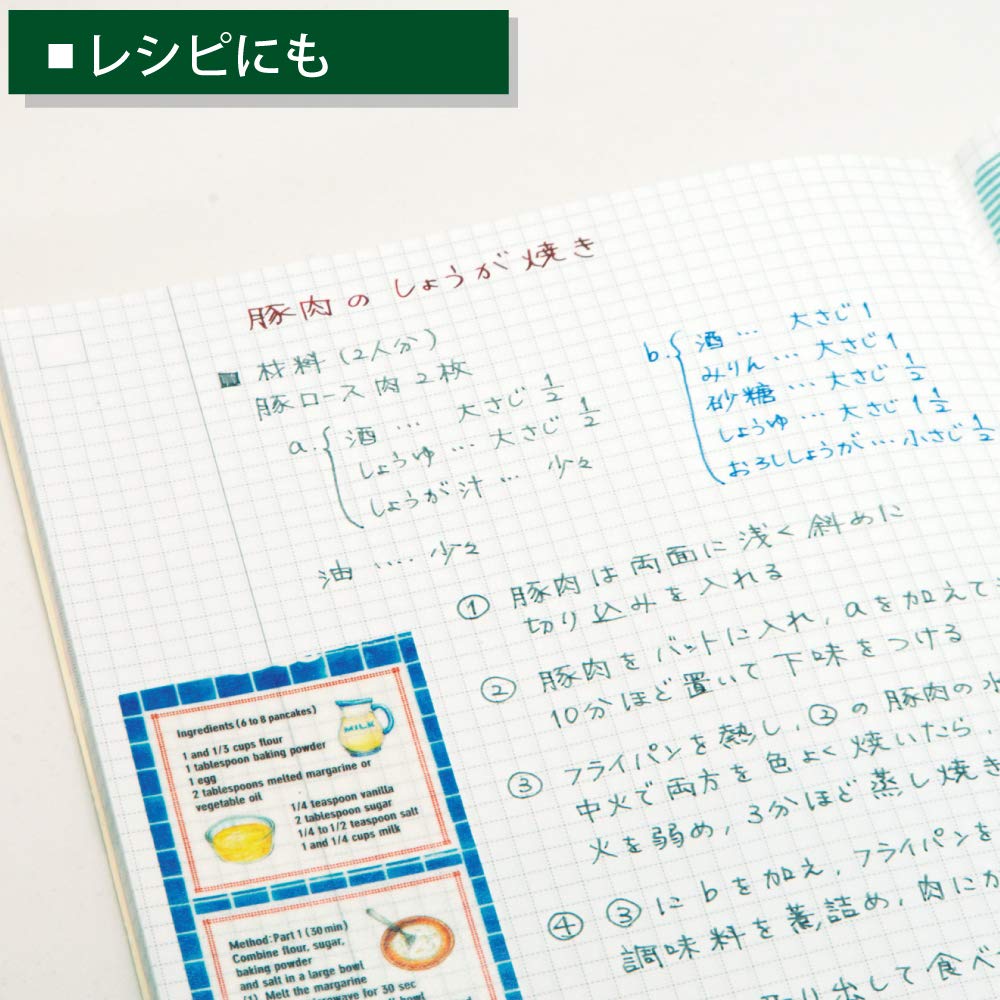 ■ レシピにも
豚肉の しょうが焼き
■ 材料(2人分)
豚ロース肉 2枚
a. 酒 … 大さじ 1/2
しょうゆ … 大さじ 1/2
しょうが汁 … 少々
油 …. 少々
b. 酒 … 大さじ 1
みりん … 大さじ 1
砂糖 … 大さじ 1/2
しょうゆ … 大さじ 1 1/2
おろししょうが … 小さじ 1/2
① 豚肉は両面に浅く斜めに
切り込みを入れる
② 豚肉をバットに入れ, aを加えて
10分ほど置いて下味をつける
③ フライパンを熱し, ②の豚肉の
中火で両方を色よく焼いたら,
火を弱め, 3分ほど蒸し焼き
④ ③にbを加え, フライパンを
調味料を煮詰め, 肉に
出して食べ
Ingredients (6 to 8 pancakes)
1 and 1/3 cups flour
1 tablespoon baking powder
1 egg
2 tablespoons melted margarine or
vegetable oil
1/4 teaspoon vanilla
2 tablespoon sugar
1/4 to 1/2 teaspoon salt
1 and 1/4 cups milk
MILK
Method: Part 1 (30 min)
Combine flour, sugar,
baking powder
and salt in a large bowl
(1) Melt the margarine
for 30 sec
bowl